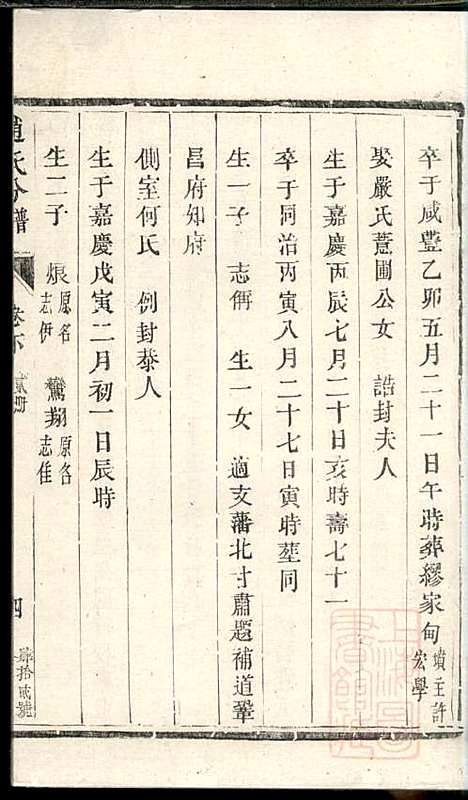 卒于咸豐乙卯五月二十一日午時葬繆家甸 墳主許宏學
娶嚴氏薏圃公女　誥封夫人
生于嘉慶丙辰七月二十日亥時壽七十一
卒于同治丙寅八月二十七日寅時塟同
生一子　志偁　生一女　適支藩北甘肅題補道鞏
昌府知府
側室何氏　例封恭人
生于嘉慶戊寅二月初一日辰時
生二子　烺 原名志伊　鸞翔 原名志佳
趙氏分譜　卷下　貳冊　四
上海圖書館藏